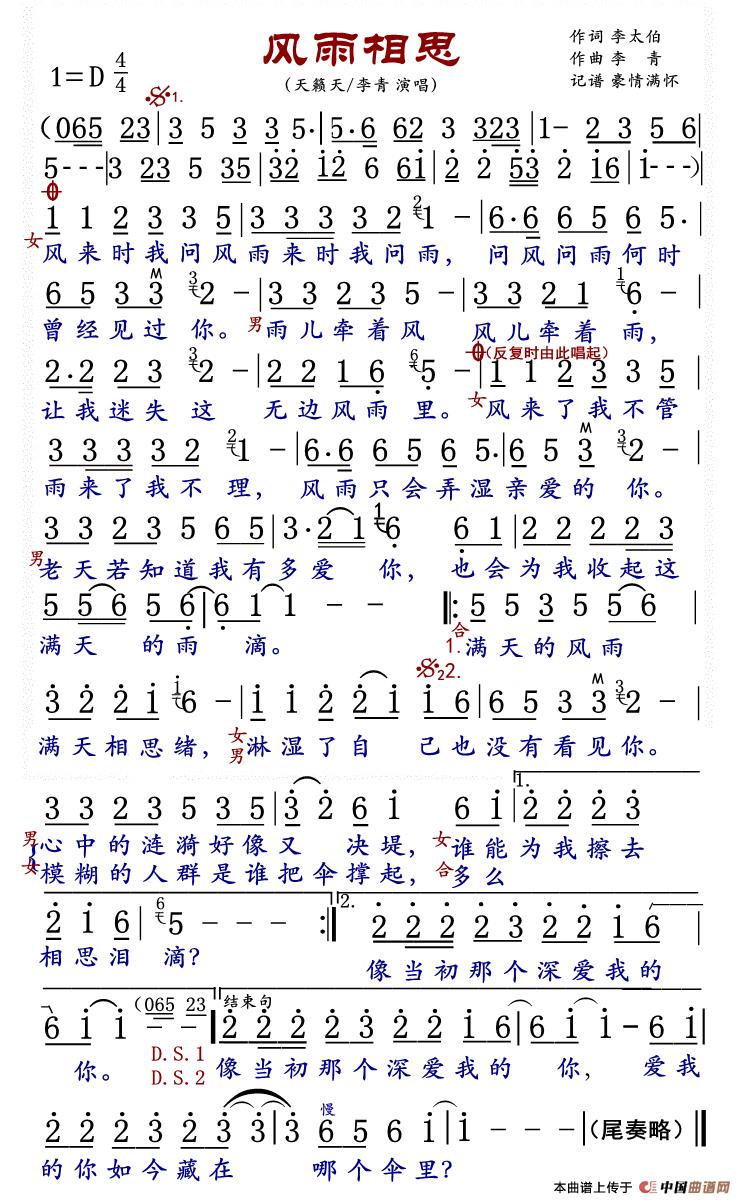 风雨相思
作词 李太伯
作曲 李 青
记谱 豪情满怀
(天籁天/李青 演唱)
1=D 4/4
1.
(065 23|3 5 3 3 5·|5·6 62 3 323|1- 2 3 5 6|
5---|3 23 5 35|32 12 6 61|2 2 53 2 16|1---)|
1 1 2 3 3 5|3 3 3 3 2 21 -|6·6 6 5 6 5·|
女风来时我问风雨来时我问雨, 问风问雨何时
6 5 3 3 32 -|3 3 2 3 5 -|3 3 2 1 16 -|
曾经见过 你。男雨儿牵着风 风儿牵着 雨,
(反复时由此唱起)
2·2 2 3 32 -|2 2 1 6 65 -|1 1 2 3 3 5|
让我迷失 这 无边风雨 里。女风来了我不管
3 3 3 3 2 21 -|6·6 6 5 6 5·|6 5 3 32 -|
雨来了我不 理, 风雨只会弄湿亲爱的 你。
3 3 2 3 5 6 5|3·2 1 16 6 1|2 2 2 2 2 3|
男老天若知道我有多爱 你, 也会为我收起这
5 5 6 5 6|6 1 1 - -‖:5 5 3 5 5 5 6|
满天 的雨 滴。 1.合满天的风雨
2.
3 2 2 1 16 -|1 1 2 2 1 1 6|6 5 3 3 32 -|
满天相思绪, 女男淋湿了自 己也没有看见你。
1.
3 3 2 3 5 3 5|3 2 6 1 6 1|2 2 2 2 3|
男心中的涟漪好像又 决堤, 女谁能为我擦去
女模糊的人群是谁把伞撑起, 合多么
2.
2 1 6|65 - - -:‖2 2 2 2 3 2 2 1 6|
相思泪 滴? 像当初那个深爱我的
(065 23 结束句
6 1 1 - -‖2 2 2 2 3 2 2 1 6|6 1 1 -- 6 1|
你。 D.S.1 像当初那个深爱我的 你, 爱我
D.S.2
慢
2 2 2 2 2 3|3 6 5 6 1|1 - - -(尾奏略)‖
的你如今藏在 哪个伞里?
本曲谱上传于 中国曲谱网